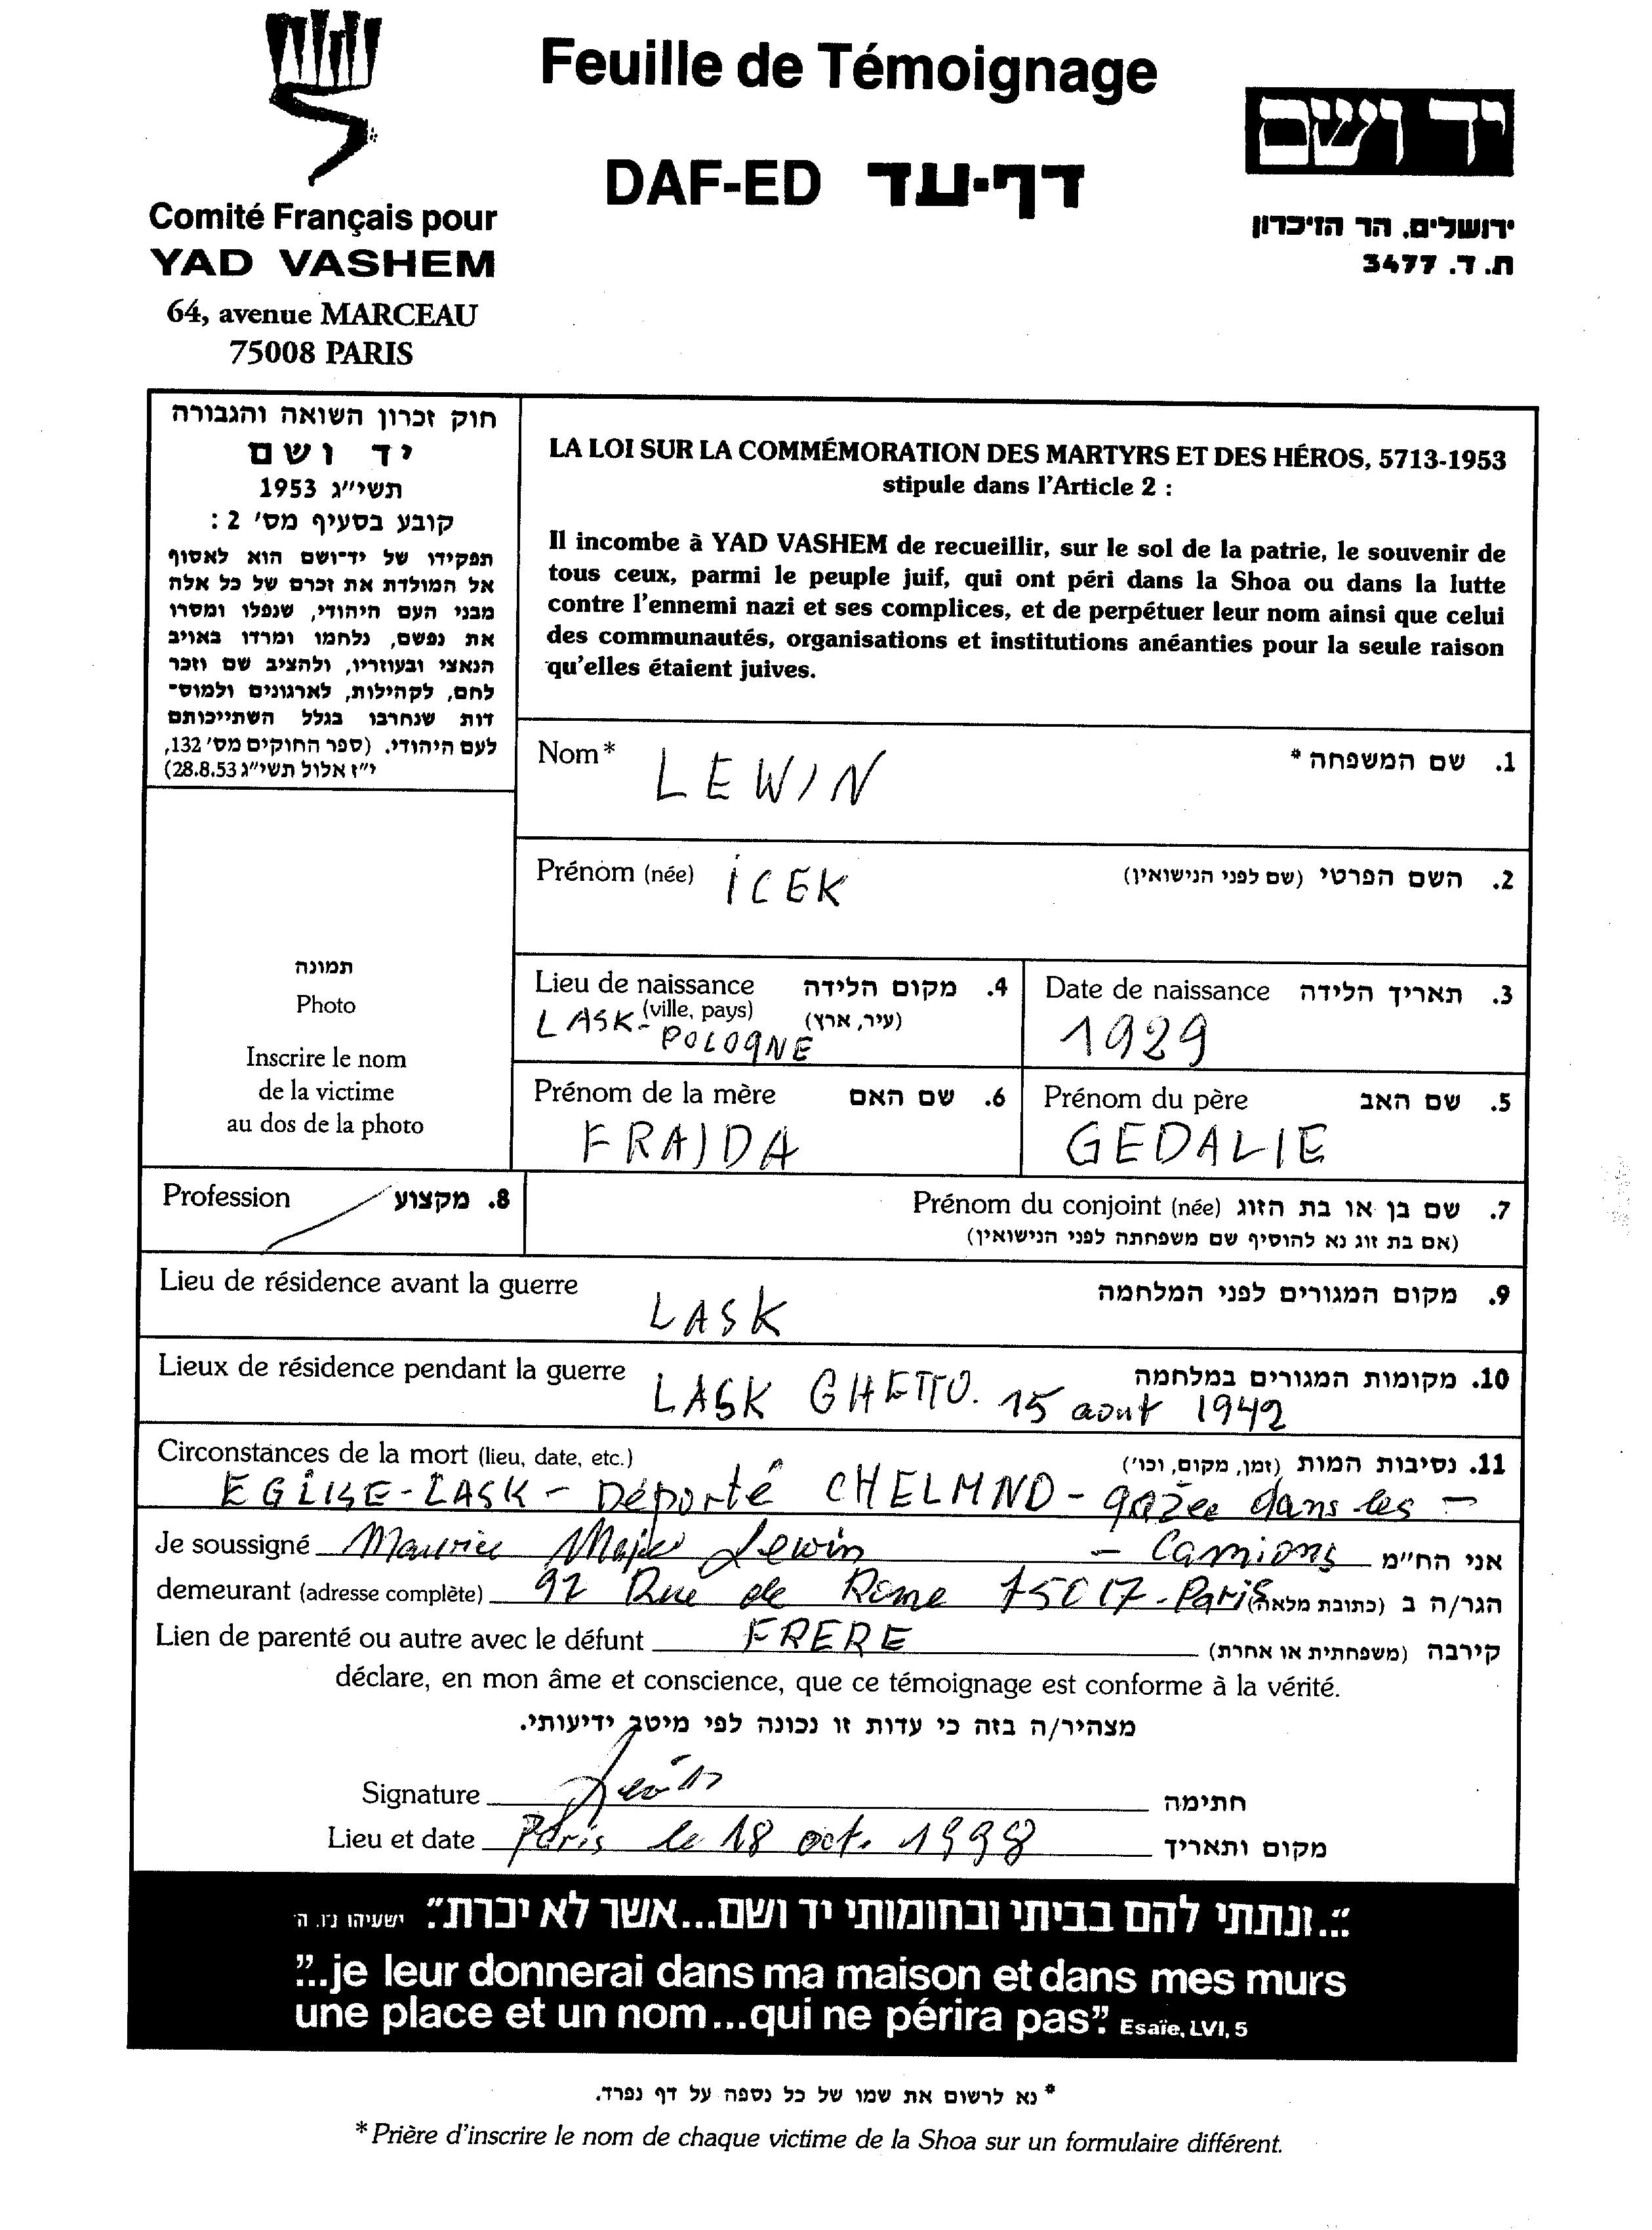 Feuille de Témoignage
DAF-ED דף-עד
Comité Français pour
YAD VASHEM
64, avenue MARCEAU
75008 PARIS
יד ושם
ירושלים. הר הזיכרון
ת. ד. 3477
חוק זכרון השואה והגבורה
יד ושם
תשי״ג 1953
קובע בסעיף מס׳ 2 :
תפקידו של יד־ושם הוא לאסוף
אל המולדת את זכרם של כל אלה
מבני העם היהודי, שנפלו ומסרו
את נפשם, נלחמו ומרדו באויב
הנאצי ובעוזריו, ולהציב שם וזכר
להם, לקהילות, לארגונים ולמוס־
דות שנחרבו בגלל השתייכותם
לעם היהודי. (ספר החוקים מס׳ 132,
י״ז אלול תשי״ג 28.8.53)
LA LOI SUR LA COMMÉMORATION DES MARTYRS ET DES HÉROS, 5713-1953
stipule dans l'Article 2 :
Il incombe à YAD VASHEM de recueillir, sur le sol de la patrie, le souvenir de
tous ceux, parmi le peuple juif, qui ont péri dans la Shoa ou dans la lutte
contre l'ennemi nazi et ses complices, et de perpétuer leur nom ainsi que celui
des communautés, organisations et institutions anéanties pour la seule raison
qu'elles étaient juives.
Nom* LEWIN 1. שם המשפחה *
Prénom (née) ICEK 2. השם הפרטי (שם לפני הנישואין)
תמונה
Photo
Inscrire le nom
de la victime
au dos de la photo
Lieu de naissance 4. מקום הלידה
(ville, pays) (עיר, ארץ)
LASK - POLOGNE
Date de naissance 3. תאריך הלידה
1929
Prénom de la mère 6. שם האם
FRAJDA
Prénom du père 5. שם האב
GEDALIE
Profession 8. מקצוע
Prénom du conjoint (née) 7. שם בן או בת הזוג
(אם בת זוג נא להוסיף שם משפחתה לפני הנישואין)
Lieu de résidence avant la guerre LASK 9. מקום המגורים לפני המלחמה
Lieux de résidence pendant la guerre 10. מקומות המגורים במלחמה
LASK GHETTO. 15 aout 1942
Circonstances de la mort (lieu, date, etc.) 11. נסיבות המות (זמן, מקום, וכו׳)
EGLISE - LASK - Déporté CHELMNO - gazée dans les -
- Camions
Je soussigné Maurice Lewin אני הח״מ
demeurant (adresse complète) 92 Rue de Rome 75017 - Paris הגר/ה ב (כתובת מלאה)
Lien de parenté ou autre avec le défunt FRERE קירבה (משפחתית או אחרת)
déclare, en mon âme et conscience, que ce témoignage est conforme à la vérité.
מצהיר/ה בזה כי עדות זו נכונה לפי מיטב ידיעותי.
Signature Lewin חתימה
Lieu et date Paris le 18 oct. 1998 מקום ותאריך
״...ונתתי להם בביתי ובחומותי יד ושם...אשר לא יכרת״. ישעיהו נ״ו. ה׳
”...je leur donnerai dans ma maison et dans mes murs
une place et un nom...qui ne périra pas”. Esaïe, LVI, 5
* נא לרשום את שמו של כל נספה על דף נפרד.
* Prière d'inscrire le nom de chaque victime de la Shoa sur un formulaire différent.